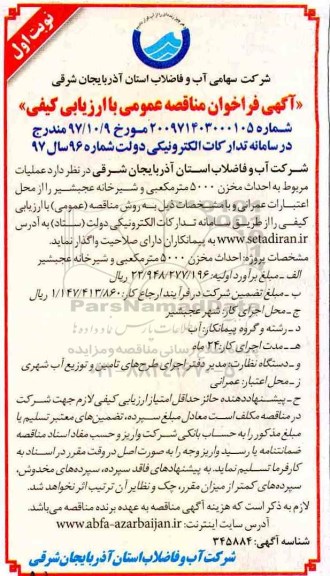 نوبت اول
شرکت سهامی آب و فاضلاب استان آذربایجان شرقی
«آگهی فراخوان مناقصه عمومی با ارزیابی کیفی»
شماره ۲۰۰۹۷۱۴۰۳۰۰۰۱۰۵ مورخ ۹۷/۱۰/۹ مندرج
در سامانه تدارکات الکترونیکی دولت شماره ۹۶ سال ۹۷
شرکت آب و فاضلاب استان آذربایجان شرقی در نظر دارد عملیات
مربوط به احداث مخزن ۵۰۰۰ مترمکعبی و شیرخانه عجبشیر را از محل
اعتبارات عمرانی و با مشخصات ذیل به روش مناقصه (عمومی) با ارزیابی
کیفی را از طریق سامانه تدارکات الکترونیکی دولت (ستاد) به آدرس
www.setadiran.ir به پیمانکاران دارای صلاحیت واگذار نماید.
مشخصات پروژه: احداث مخزن ۵۰۰۰ مترمکعبی و شیرخانه عجبشیر
الف ـ مبلغ برآورد اولیه: ۲۲/۹۴۸/۲۷۷/۱۹۶ ریال
ب ـ مبلغ تضمین شرکت در فرآیند ارجاع کار: ۱/۱۴۷/۴۱۳/۸۶۰ ریال
ج ـ محل اجرای کار: شهر عجبشیر
د ـ رشته و گروه پیمانکار: آب
هـ ـ مدت اجرای کار: ۲۴ ماه
و ـ دستگاه نظارت: مدیر دفتر اجرای طرح‌های تامین و توزیع آب شهری
ز ـ محل اعتبار: عمرانی
ح ـ پیشنهاددهنده حائز حداقل امتیاز ارزیابی کیفی لازم جهت شرکت
در مناقصه مکلف است معادل مبلغ سپرده، تضمین‌های معتبر تسلیم یا
مبلغ مذکور را به حساب بانکی شرکت واریز و حسب مفاد اسناد مناقصه
ضمانتنامه یا رسید واریز وجه را به صورت اصل در وقت مقرر در اسناد به
کارفرما تسلیم نماید. به پیشنهادهای فاقد سپرده، سپرده‌های مخدوش،
سپرده‌های کمتر از میزان مقرر، چک و نظایر آن ترتیب اثر نخواهد شد.
لازم به ذکر است که هزینه آگهی مناقصه به عهده برنده مناقصه می‌باشد.
آدرس سایت اینترنت: www.abfa-azarbaijan.ir
شناسه آگهی: ۳۴۵۸۸۴
شرکت آب و فاضلاب استان آذربایجان شرقی